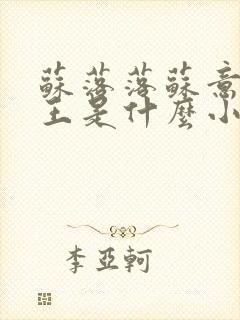 蘇落落蘇意
王是什麼小
李亞軻